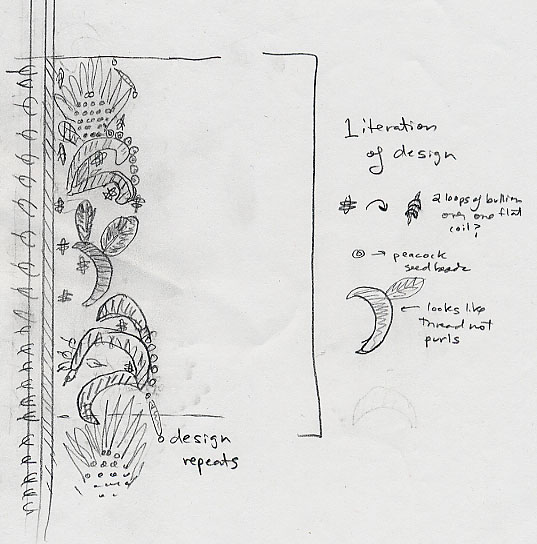 1 iteration
of design
2 loops of bullion
over one flat
coil?
→ peacock
seed beads
← looks like
thread not
purls
design
repeats